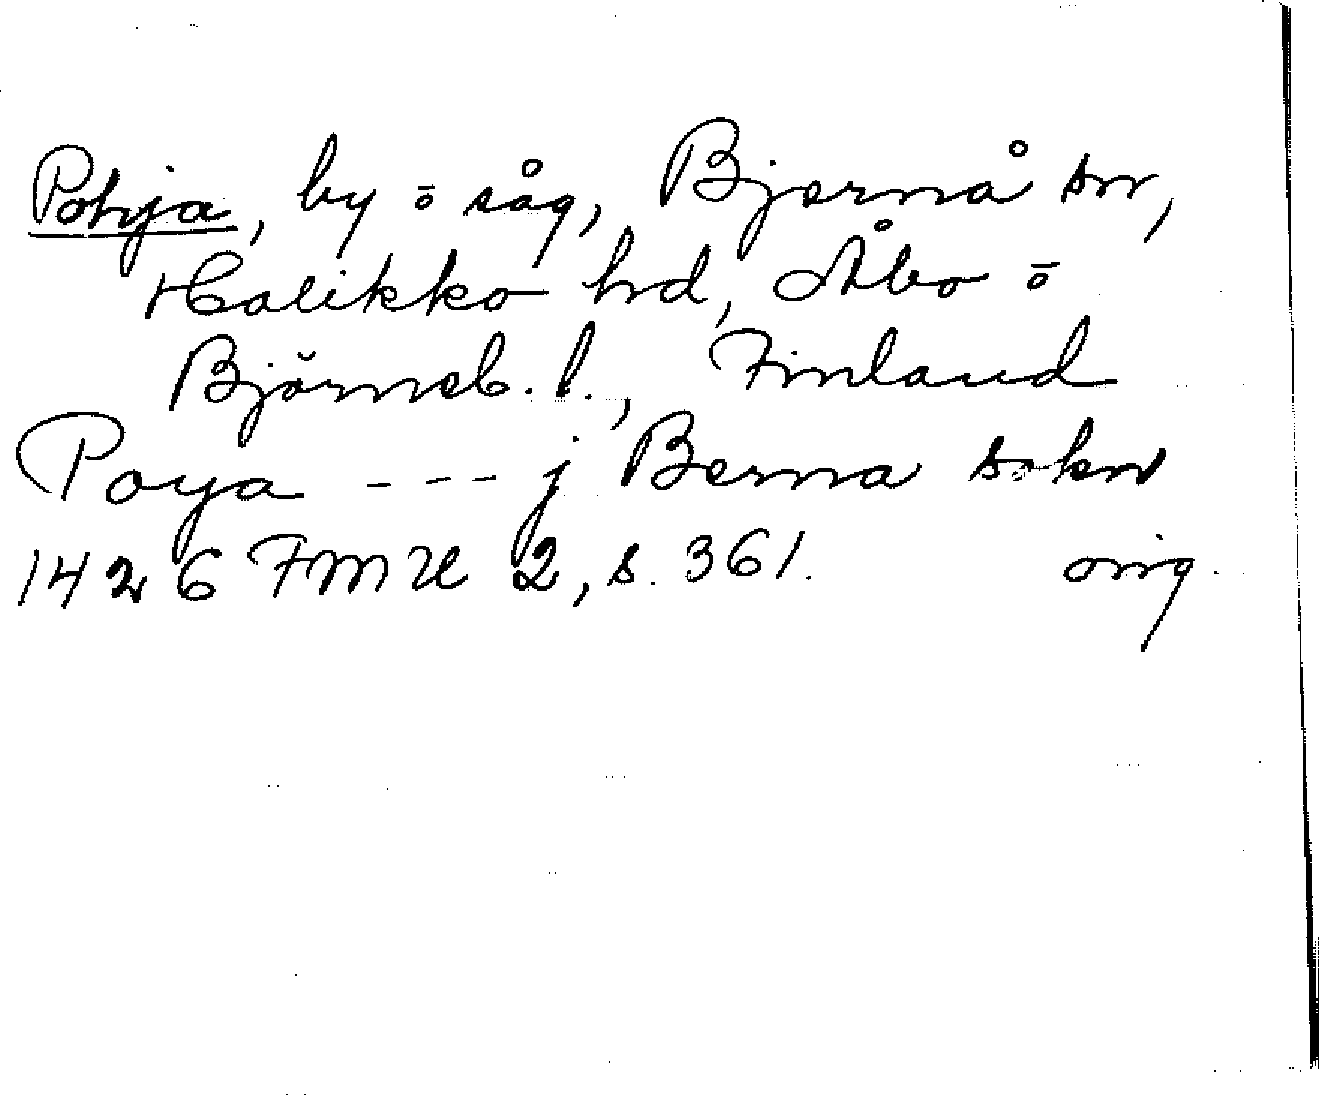 Pohja, by ō såg, Bjernå sn,
Halikko hd, Åbo ō
Björneb. l., Finland
Poya --- j Berna sokn
1426 FMU 2, s. 361. orig.